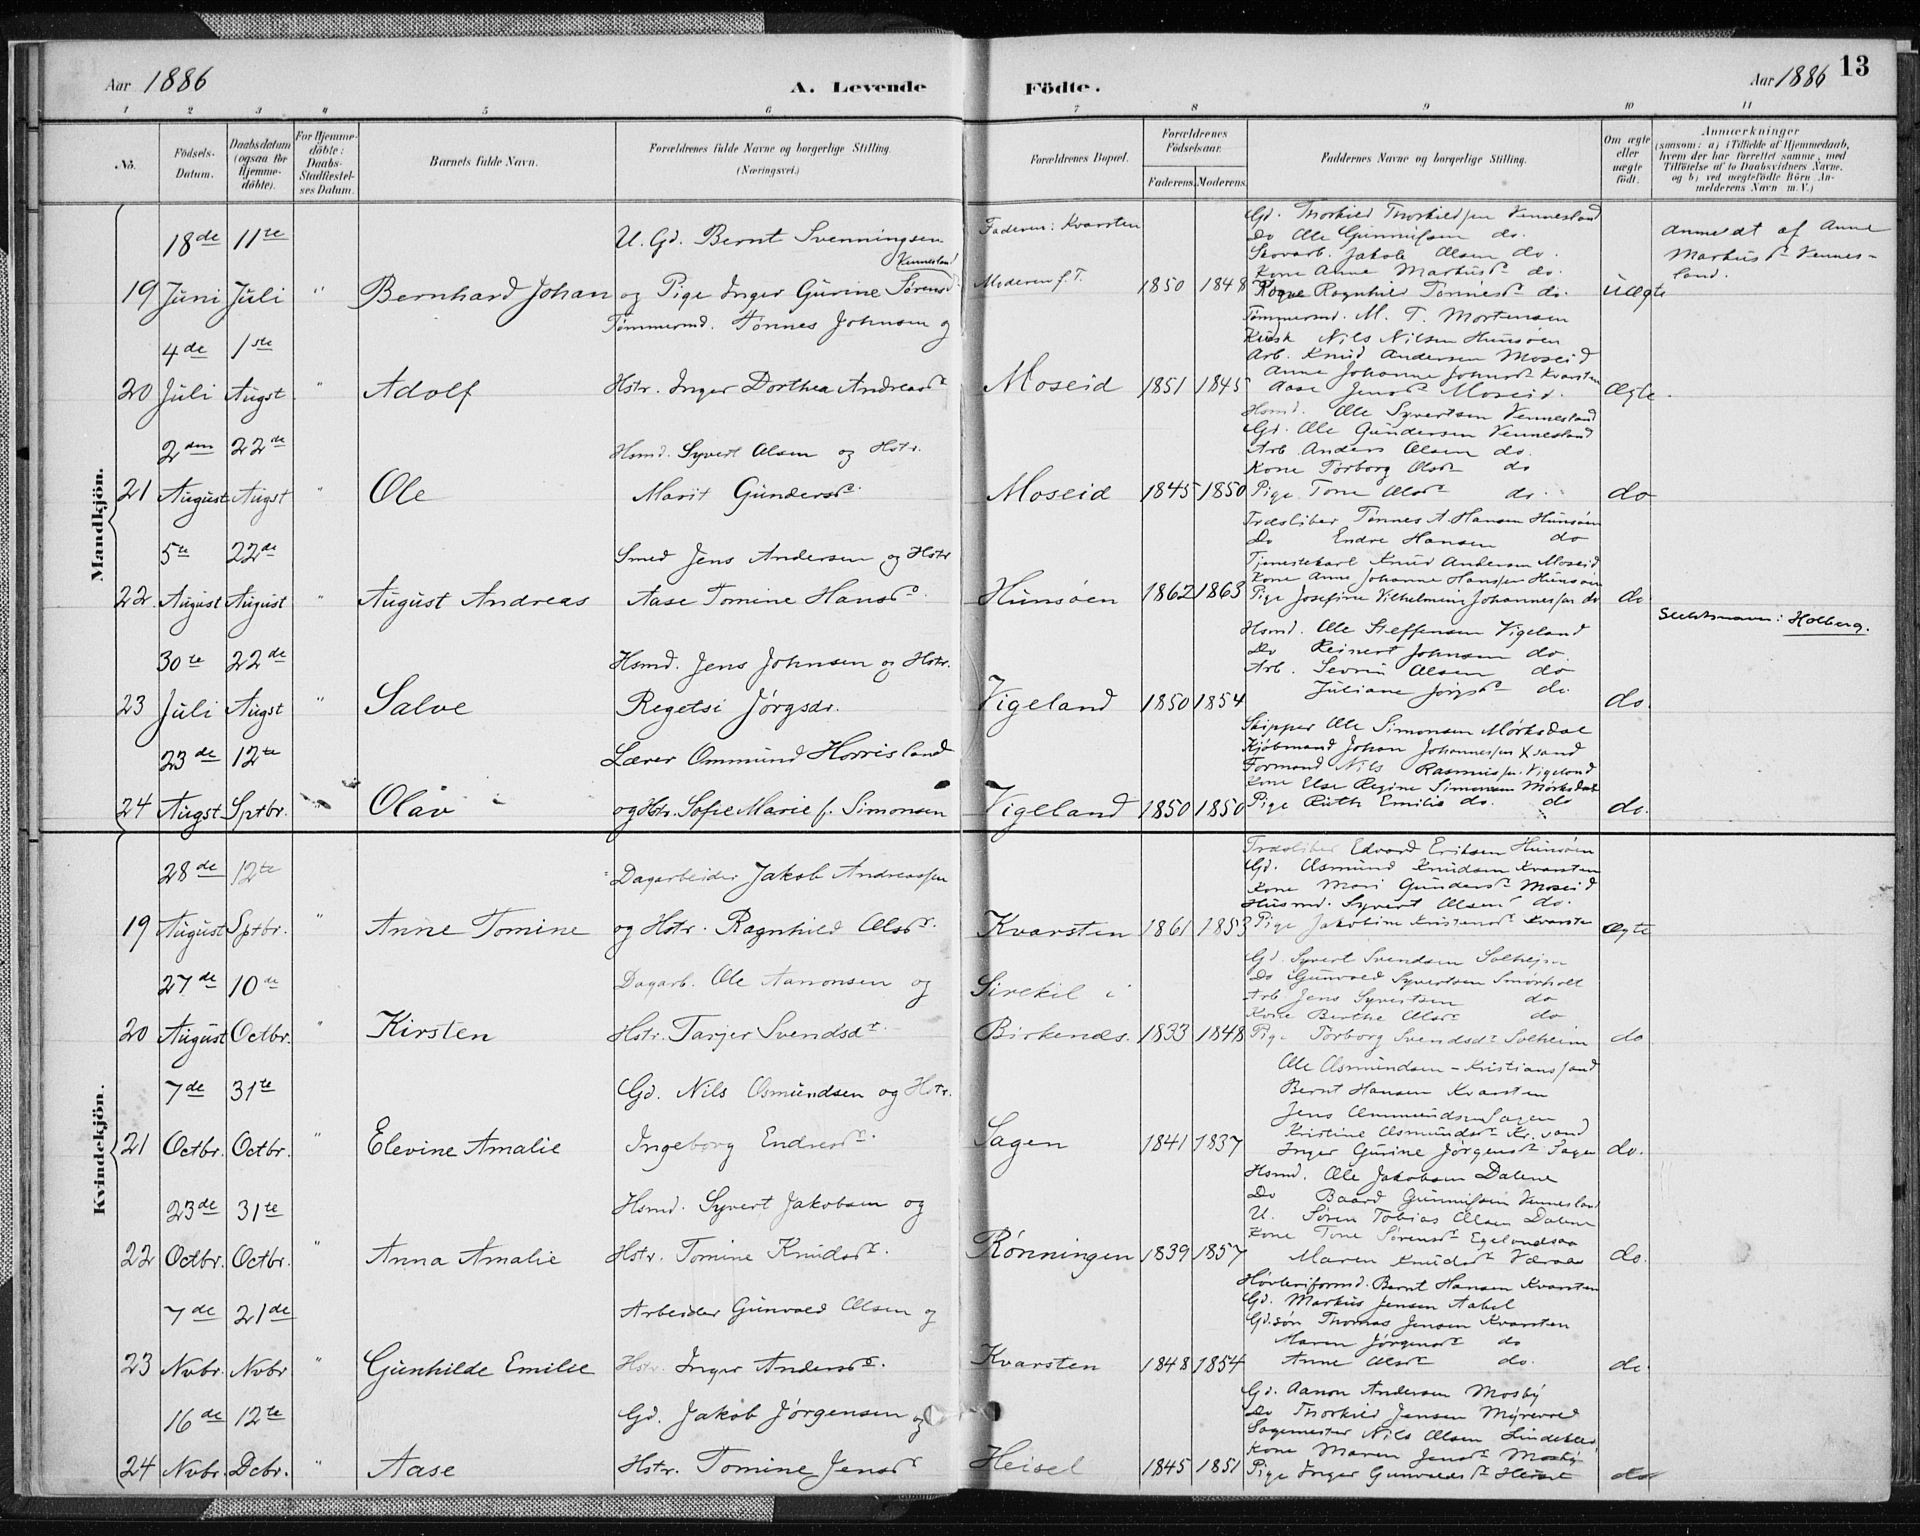 Aar 1886
A. Levende Födte.
Aar 1886 13
1 2 3 4 5 6 7 8 9 10 11
Nö.
Födsels-Datum.
Daabsdatum (ogsaa for Hjemme-döbte).
For Hjemme-döbte: Daabs-Stadfæstel-ses Datum.
Barnets fulde Navn.
Forældrenes fulde Navne og borgerlige Stilling. (Næringsvei.)
Forældrenes Bopæl.
Forældrenes Födselsaar.
Faderens. Moderens.
Faddernes Navne og borgerlige Stilling.
Om ægte eller uægte födt.
Anmærkninger (saasom: a) i Tilfælde af Hjemmedaab, hvem der har forrettet samme, med Tilföielse af to Daabsvidners Navne, og b) ved uægtefödte Börn Anmelderens Navn m. V.)
Mandkjön.
19 18de Juni 11te Juli " Bernhard Johan
U. Gd. Bernt Svenningsen
Vennesland
og Pige Inger Gurine Sørensd.
Faderen: Kvarsten
Moderen f. T.
1850 1848
Gd. Thorkild Thorkildsen Vennesland
Do Ole Gunnulsen do.
Skovarb. Jakob Olsen do.
Kone Anne Markusdr do.
Kone Ragnhild Tønnesdr do.
Uægte
Anmeldt af Anne
Markusdr Vennes-
land.
20 4de Juli 1ste Augst " Adolf
Tømmermd. Tønnes Johnsen og
Hstr. Inger Dorthea Andreasdr
Moseid 1851 1845
Tømmermd. M. T. Mortensen
Kusk Nils Nilsen Hunsøen
Arb. Knud Andersen Moseid
Anne Johanne Johnsdr Kvarsten
Aase Jensdr Moseid.
Ægte.
21 2den August 22de Augst " Ole
Hsmd. Syvert Olsen og Hstr.
Marit Gundersdr.
Moseid 1845 1850
Hsmd. Ole Syvertsen Vennesland
Gd. Ole Gundersen Vennesland
Arb. Anders Olsen do.
Kone Torborg Olsdr do
Pige Tone Olsdr do.
do
22 5te August 22de August " August Andreas
Smed Jens Andersen og Hstr
Aase Tomine Hansdr.
Hunsøen 1862 1863
Træsliber Tønnes A. Hansen Hunsøen
Do Endre Hansen do
Tjenestekarl Knud Andersen Moseid
Kone Anne Johanne Hanssen Hunsøen
Pige Josefine Vilhelmine Johannessen do
do
Slektsnavn: Holberg.
23 30te Juli 22de Augst " Salve
Hsmd. Jens Johnsen og Hstr.
Regetsi Jørgsdr.
Vigeland 1850 1854
Hsmd. Ole Steffensen Vigeland
Do Reinert Johnsen do.
Arb. Severin Olsen do
Juliane Jørgsdr do.
do.
24 23de Augst 12te Sptbr. Olav
Lærer Ommund Horrisland
og Hstr. Sofie Marie f. Simonsen
Vigeland 1850 1850
Skipper Ole Simonsen Mørksdal
Kjøbmand Johan Johannessen Xsand
Formand Nils Rasmussen Vigeland
Kone Else Regine Simonsen Mørksdal
Pige Ruth Emilie do. do
do.
Kvindekjön.
19 28de August 12te Sptbr. " Anne Tomine
Dagarbeider Jakob Andreassen
og Hstr. Ragnhild Olsdr.
Kvarsten 1861 1853
Træsliber Edvard Eriksen Hunsøen
Gd. Osmund Knudsen Kvarsten
Kone Mari Gundersdr Moseid
Husmd. Syvert Olsen do.
Pige Jakobine Kristensdr Kvarsten
Ægte
20 27de August 10de Octbr. " Kirsten
Dagarb. Ole Aanonsen og
Hstr. Tarjer Svendsdr.
Sirekil i
Birkenæs. 1833 1848
Gd. Syvert Svendsen Solheim
Do Gunvald Syvertsen Smørholt
Arb Jens Syvertsen do
Kone Berthe Olsdr do
Pige Torborg Svendsdr Solheim
do
21 7de Octbr. 31te Octbr. " Elevine Amalie
Gd. Nils Osmundsen og Hstr.
Ingeborg Endresdr.
Sagen 1841 1837
Ole Osmundsen - Kristianssand
Bernt Hansen Kvarsten
Jens Ommundsen Sagen
Kristine Osmundsdr Kr.sand
Inger Gurine Jørgensdr Sagen
do.
22 23de Octbr. 31te Octbr. " Anna Amalie
Hsmd. Syvert Jakobsen og
Hstr. Tomine Knudsdr.
Rønningen 1839 1857
Hsmd. Ole Jakobsen Dalene
Do Baard Gunnulsen Vennesland
U. Søren Tobias Olsen Dalene
Kone Tone Sørensdr Egelandsaa
Maren Knudsdr Væraas
do.
23 7de Nvbr. 21de Nvbr " Gunhilde Emilie
Arbeider Gunvald Olsen og
Hstr. Inger Andersdr.
Kvarsten 1848 1854
Høvleriformd. Bernt Hansen Kvarsten
Gd. Markus Jensen Aabel
Gd.søn Thomas Jensen Kvarsten
Maren Jørgensdr do
Anne Olsdr do.
do.
24 16de Nvbr. 12te Dcbr. " Aase
Gd. Jakob Jørgensen og
Hstr. Tomine Jensdr
Heisel 1845 1851
Gd. Aanon Andersen Mosby
Do Thorkild Jensen Myrevold
Sagemester Nils Olsen
Kone Maren Jensdr Mosby
Pige Inger Gunvaldsdr
do